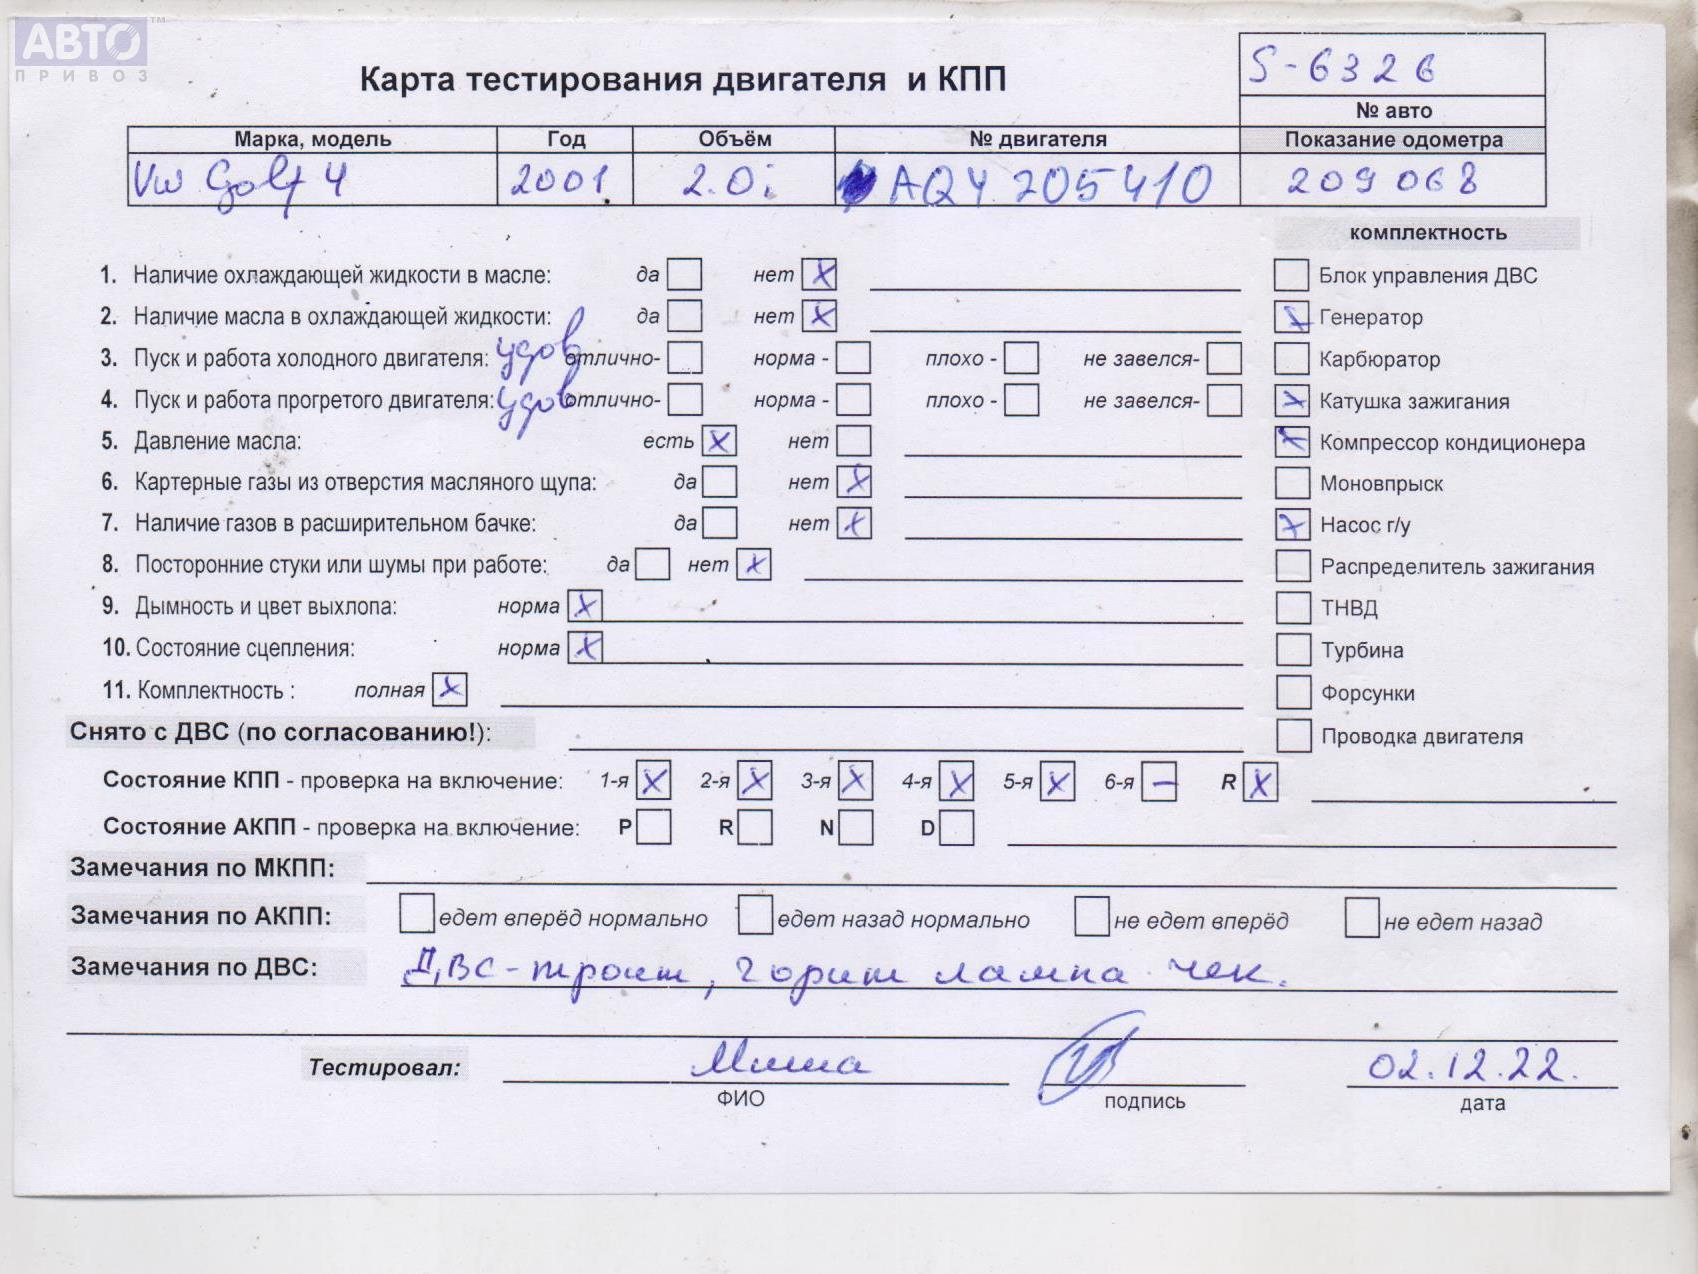 АВТО™
ПРИВОЗ
Карта тестирования двигателя и КПП
S-6326
№ авто
Марка, модель Год Объём № двигателя Показание одометра
VW Golf 4 2001 2.0i AQY 205410 209068
комплектность
1. Наличие охлаждающей жидкости в масле: да нет X
Блок управления ДВС
2. Наличие масла в охлаждающей жидкости: да нет X
X Генератор
3. Пуск и работа холодного двигателя: удов отлично- норма - плохо - не завелся-
Карбюратор
4. Пуск и работа прогретого двигателя: удов отлично- норма - плохо - не завелся-
X Катушка зажигания
5. Давление масла: есть X нет
X Компрессор кондиционера
6. Картерные газы из отверстия масляного щупа: да нет X
Моновпрыск
7. Наличие газов в расширительном бачке: да нет X
X Насос г/у
8. Посторонние стуки или шумы при работе: да нет X
Распределитель зажигания
9. Дымность и цвет выхлопа: норма X
ТНВД
10. Состояние сцепления: норма X
Турбина
11. Комплектность : полная X
Форсунки
Снято с ДВС (по согласованию!):
Проводка двигателя
Состояние КПП - проверка на включение: 1-я X 2-я X 3-я X 4-я X 5-я X 6-я – R X
Состояние АКПП - проверка на включение: P R N D
Замечания по МКПП:
Замечания по АКПП: едет вперёд нормально едет назад нормально не едет вперёд не едет назад
Замечания по ДВС: ДВС-троит, горит лампа чек.
Тестировал: Миша 02.12.22.
ФИО подпись дата